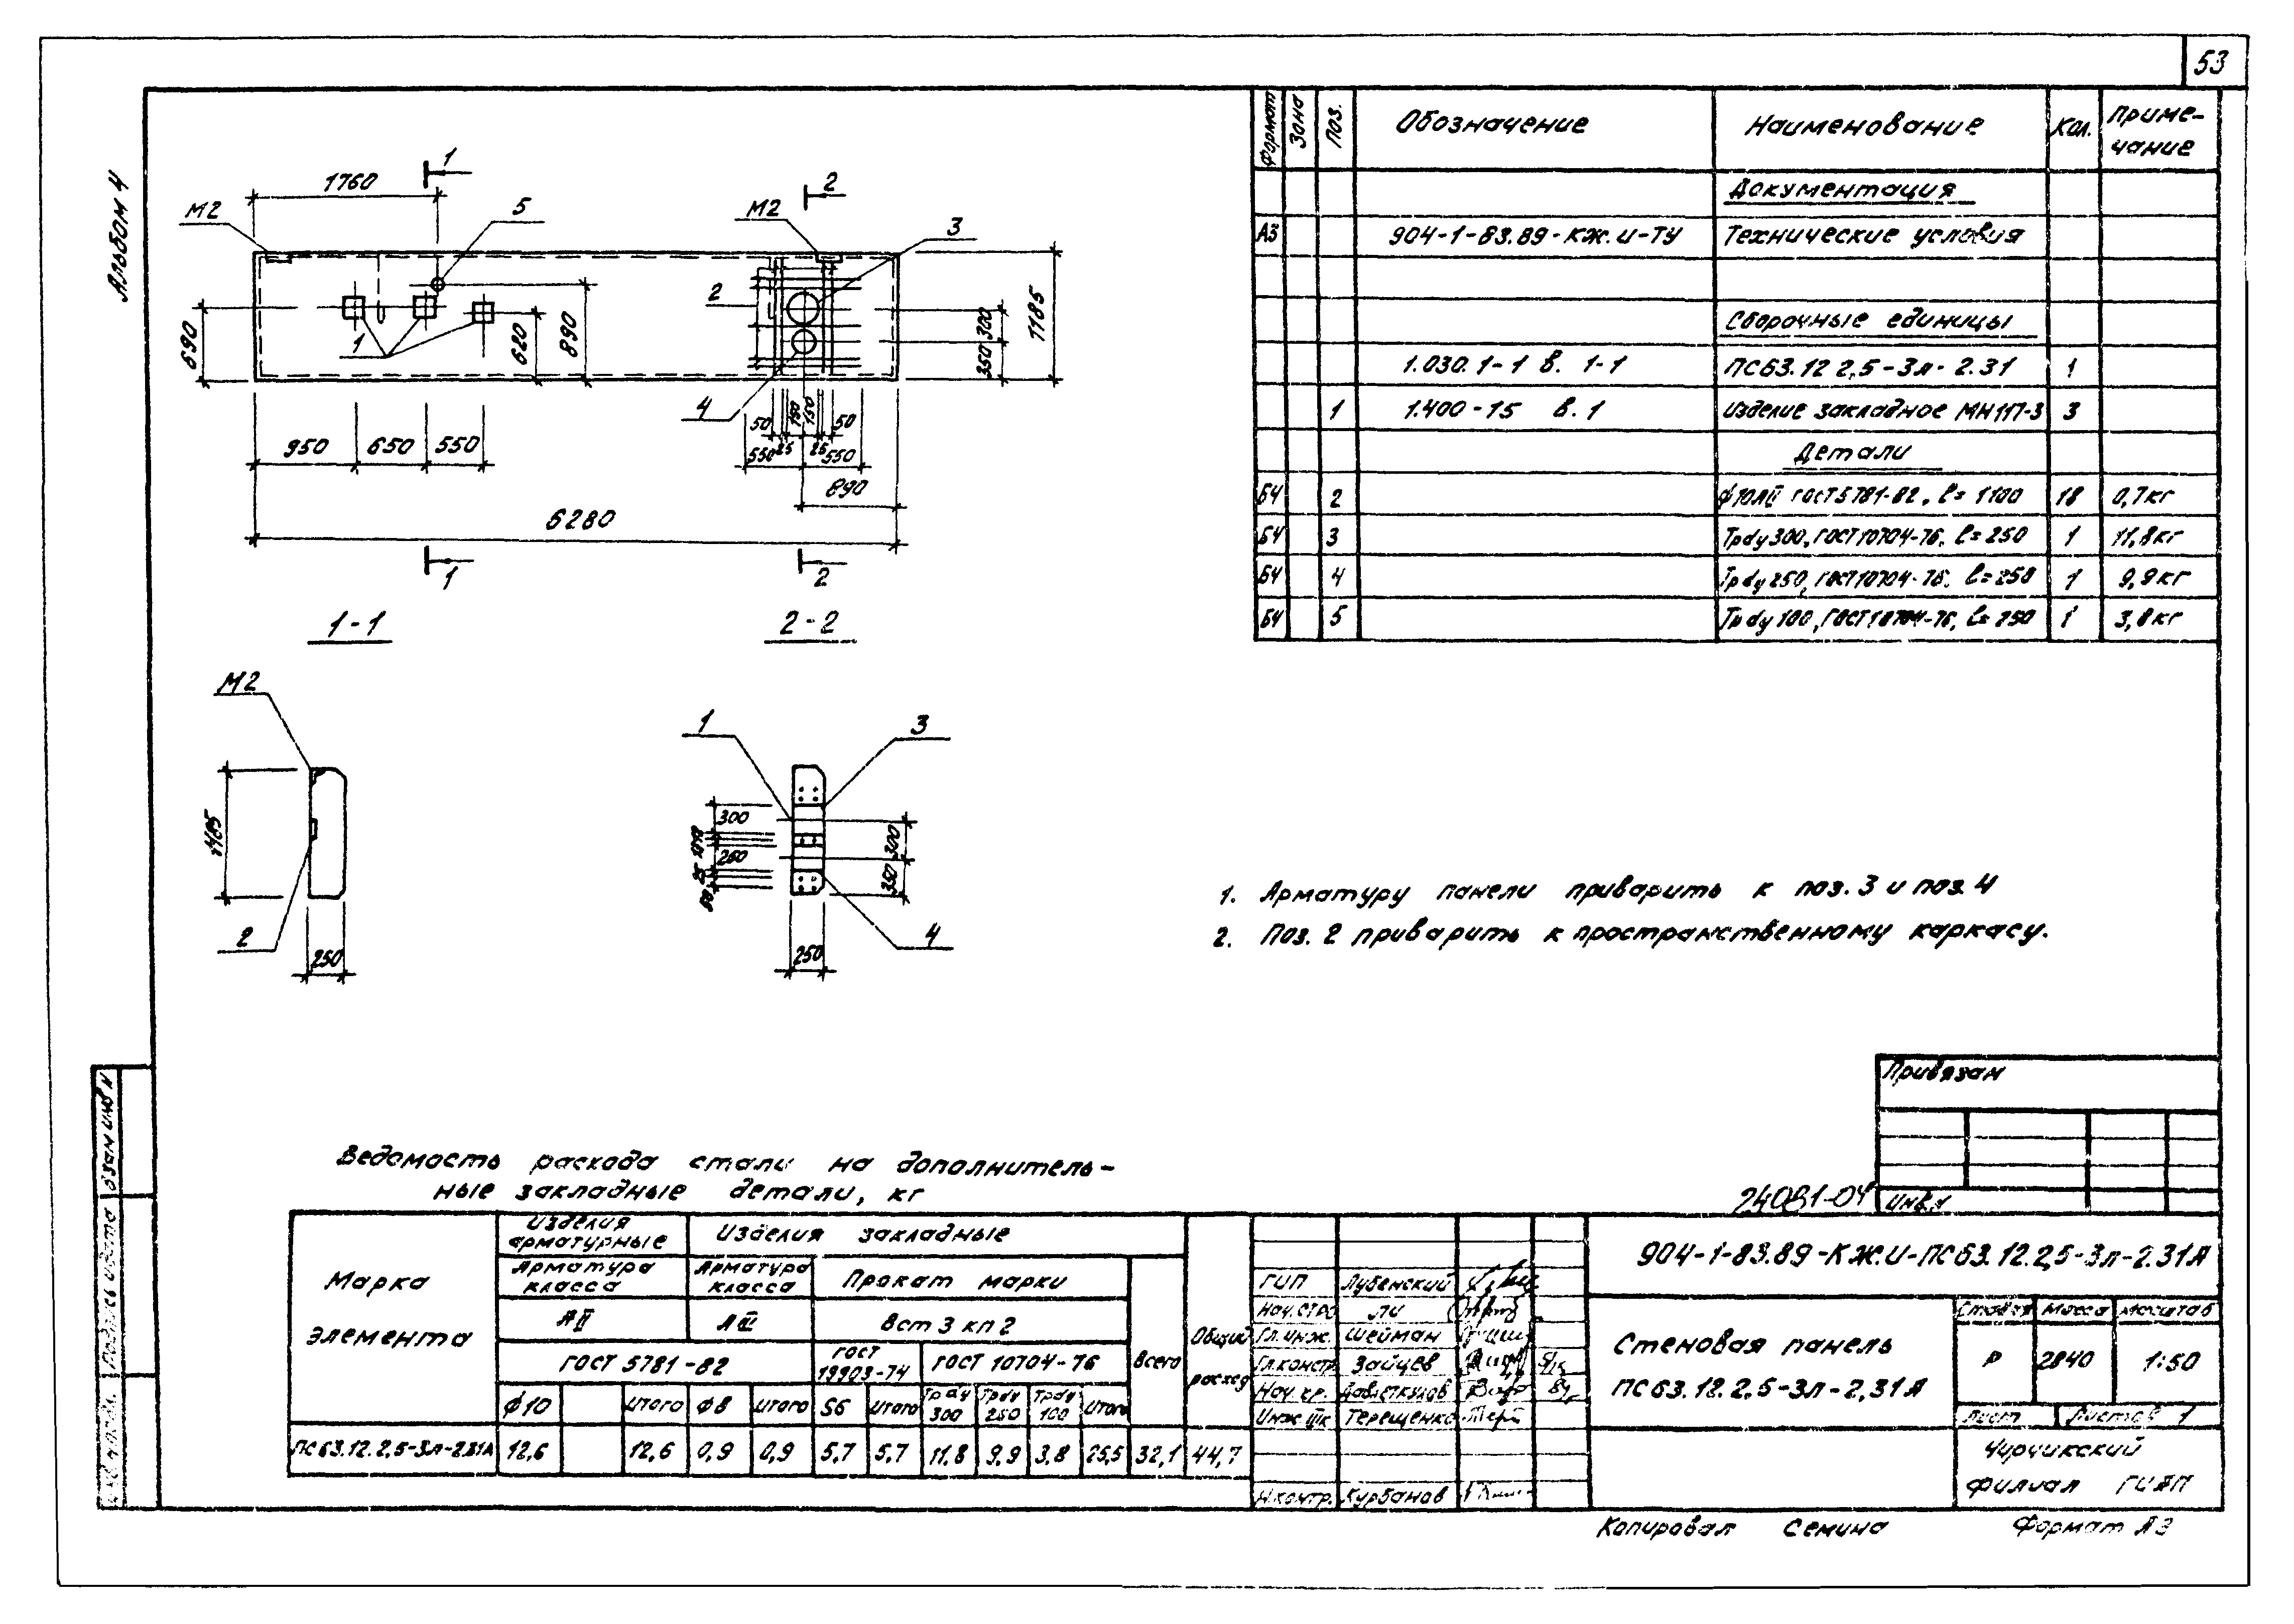 53
Альбом 4
Формат Зона Поз. Обозначение Наименование Кол. Приме-
чание
Документация
А3 904-1-83.89-КЖ.И-ТУ Технические условия
Сборочные единицы
1.030.1-1 в. 1-1 ПС63.12 2,5-3л-2.31 1
1 1.400-15 в.1 Изделие закладное МН117-3 3
Детали
БЧ 2 ф10АII ГОСТ5781-82, ℓ=1100 18 0,7кг
БЧ 3 Трdу300, ГОСТ10704-76, ℓ=250 1 11,8кг
БЧ 4 Трdу250, ГОСТ10704-76, ℓ=250 1 9,9кг
БЧ 5 Трdу100, ГОСТ10704-76, ℓ=250 1 3,8кг
1 2
1760
М2 5 М2 3
2
1
690 620 890 350 300 1185
4
50 150 150 50
950 650 550 550 25 25 550
890
6280
1 2
1-1 2-2
М2
1 3
1185
300
250
25
50
300
350
2 4
250 250
1. Арматуру панели приварить к поз.3 и поз.4
2. Поз.2 приварить к пространственному каркасу.
Привязан
Инв.
24081-04
Ведомость расхода стали на дополнитель-
ные закладные детали, кг
Марка
элемента
Изделия
арматурные
Изделия закладные
Общий
расход
Арматура
класса
Арматура
класса
Прокат марки
Всего
АII АIII Вст3кп2
ГОСТ 5781-82 ГОСТ
19903-74
ГОСТ 10704-76
ф10 Итого ф8 Итого S6 Итого Трdу
300 Трdу
250 Трdу
100 Итого
ПС63.12.2,5-3л-2.31А 12,6 12,6 0,9 0,9 5,7 5,7 11,8 9,9 3,8 25,5 32,1 44,7
ГИП Лубенский
Нач.СТРО Ли
Гл.инж. Шейман
Гл.констр. Зайцев
Нач.гр.
Инж Терещенко
Н.контр. Курбанов
904-1-83.89-КЖ.И-ПС63.12.2,5-3л-2.31А
Стеновая панель
ПС63.12.2,5-3л-2,31А
Стадия Масса Масштаб
Р 2840 1:50
Лист Листов 1
Чирчикский
филиал ГИАП
Взам инв N
Подпись и дата
Инв. N подл.
Копировал Семина Формат А3